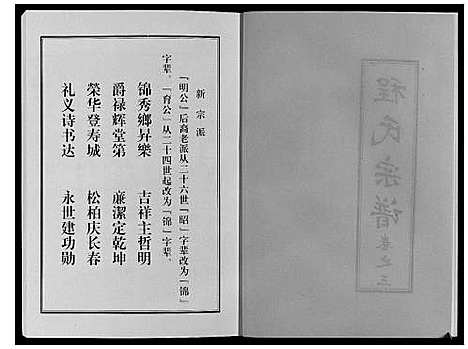 程氏宗谱
卷之三
新宗派
「明公」后裔老派从二十六世「昭」字辈改为「锦」
字辈。「育公」从二十四世起改为「锦」字辈。
锦秀鄉昇樂 吉祥主哲明
爵禄辉堂第 亷潔定乾坤
榮华登寿城 松柏庆长春
礼义诗书达 永世建功勋